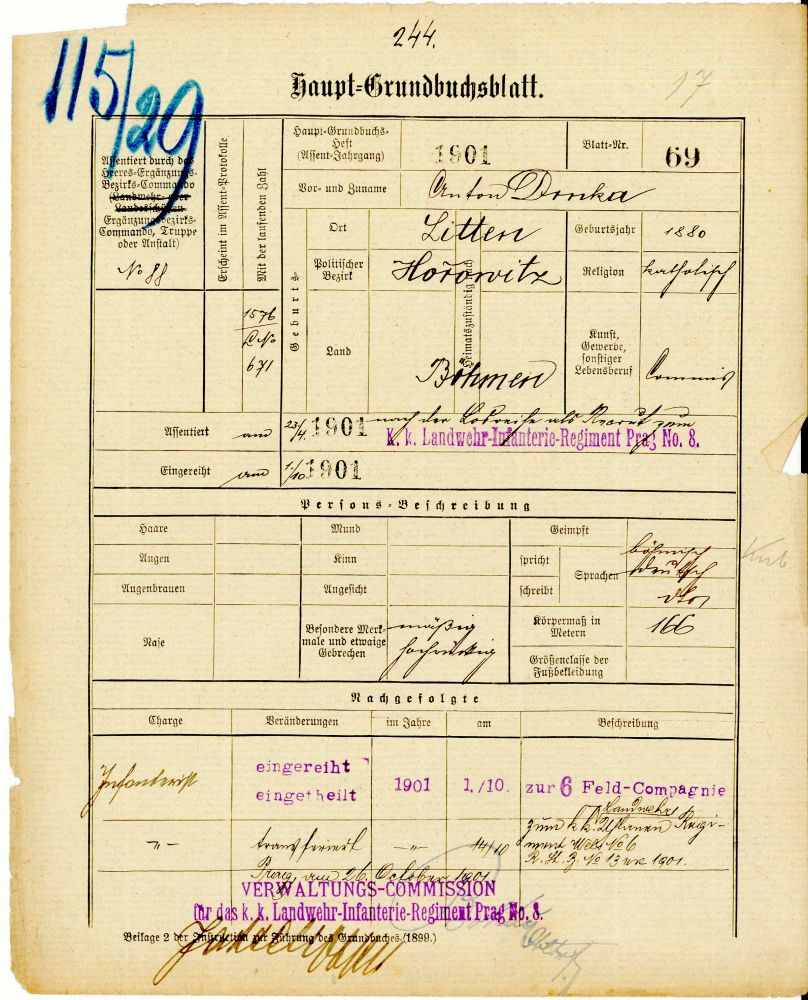 244.
115/29
Haupt-Grundbuchsblatt.
17
Assentiert durch das
Heeres-Ergänzungs-
Bezirks-Commando
(Landwehr- oder
Landesschützen-
Ergänzungsbezirks-
Commando, Truppe
oder Anstalt)
No 88
Erscheint im Assent-Protokolle
Mit der laufenden Zahl
1576
L No
671
Haupt-Grundbuchs-
Heft
(Assent-Jahrgang)
1901
Blatt-Nr.
69
Vor- und Zuname
Anton Donka
Geburts-
Ort
Litten
Geburtsjahr
1880
Politischer
Bezirk
Hořowitz
Heimatszuständig nach
Religion
katholisch
Land
Böhmen
Kunst,
Gewerbe,
sonstiger
Lebensberuf
Commis
Assentiert am 23/4. 1901 nach der Losreihe als Recrut zum
k. k. Landwehr-Infanterie-Regiment Prag No. 8.
Eingereiht am 1./10 1901
Persons-Beschreibung
Haare
Mund
Geimpft
Augen
Kinn
spricht
Sprachen
böhmisch
deutsch
Augenbrauen
Angesicht
schreibt
dto
Nase
Besondere Merk-
male und etwaige
Gebrechen
mäßig
hochrückig
Körpermaß in
Metern
166
Größenclasse der
Fußbekleidung
Nachgefolgte
Charge
Veränderungen
im Jahre
am
Beschreibung
Infanterist
eingereiht
eingetheilt
1901
1./10.
zur 6 Feld-Compagnie
-"-
transferiert
-"-
14/10
Landwehr
zum k. k. Uhlanen Regi-
ment Wels No 6
R. St. Z. No 13 ex 1901.
Prag, am 26. October 1901
VERWALTUNGS-COMMISSION
für das k. k. Landwehr-Infanterie-Regiment Prag No. 8.
Beilage 2 der Instruction zur Führung des Grundbuches (1899.)